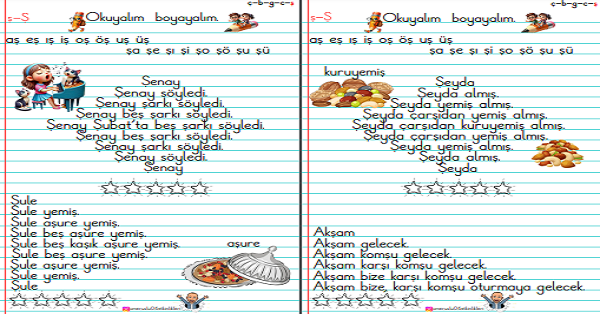 ç-b-g-c-ş
ş-S Okuyalım boyayalım.
aş eş ış iş oş öş uş üş
şa şe şı şi şo şö şu şü
Şenay
Şenay söyledi.
Şenay şarkı söyledi.
Şenay beş şarkı söyledi.
Şenay Şubat'ta beş şarkı söyledi.
Şenay beş şarkı söyledi.
Şenay şarkı söyledi.
Şenay söyledi.
Şenay
Şule
Şule yemiş.
Şule aşure yemiş.
Şule beş aşure yemiş.
Şule beş kaşık aşure yemiş. aşure
Şule beş aşure yemiş.
Şule aşure yemiş.
Şule yemiş.
Şule
ç-b-g-c-ş
ş-S Okuyalım boyayalım.
aş eş ış iş oş öş uş üş
şa şe şı şi şo şö şu şü
kuruyemiş
Şeyda
Şeyda almış.
Şeyda yemiş almış.
Şeyda çarşıdan yemiş almış.
Şeyda çarşıdan kuruyemiş almış.
Şeyda çarşıdan yemiş almış.
Şeyda yemiş almış.
Şeyda almış.
Şeyda
Akşam
Akşam gelecek.
Akşam komşu gelecek.
Akşam karşı komşu gelecek.
Akşam bize karşı komşu gelecek.
Akşam bize, karşı komşu oturmaya gelecek.